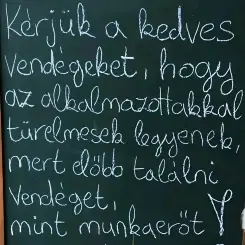 Kérjük a kedves
vendégeket, hogy
az alkalmazottakkal
türelmesek legyenek,
mert előbb találni
vendéget,
mint munkaerőt!